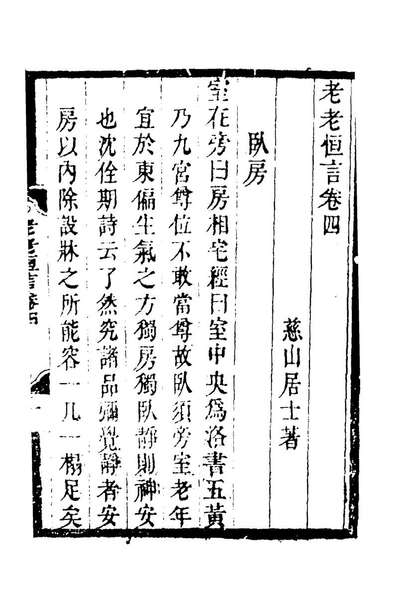 老老恒言卷四
慈山居士著
臥房
室在旁曰房相宅經曰室中央爲洛書五黃
乃九宮尊位不敢當尊故臥須旁室老年
宜於東偏生氣之方獨房獨臥靜則神安
也沈佺期詩云了然究諸品彌覺靜者安
房以內除設牀之所能容一几一榻足矣
老老恒言卷四
一